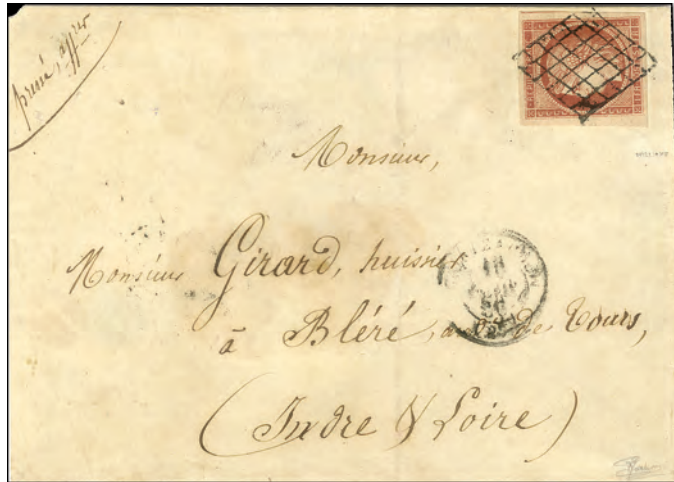 pressé, affer
Monsieur,
Monsieur Girard, huissier
à Bléré, de Tours,
(Indre & Loire)